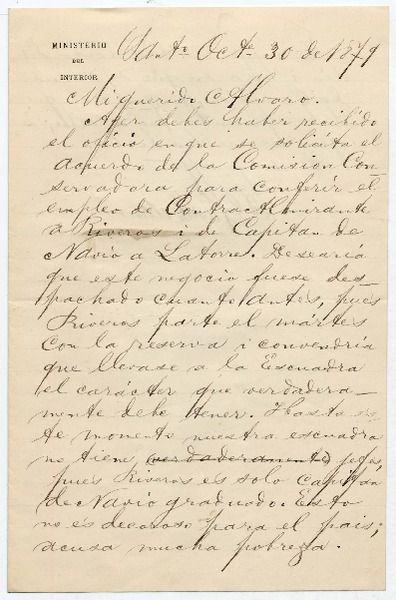 MINISTERIO
DEL
INTERIOR
Sant. Oct. 30 de 1879
Mi querido Alvaro.
Ayer debes haber recibido
el oficio en que se solicita el
acuerdo de la Comision Con-
servadora para conferir el
empleo de Contra Almirante
a Riveros i de Capitan de
Navio a Latorre. Desearia
que este negocio fuese des-
pachado cuanto antes, pues
Riveros parte el mártes
con la reserva i convendria
que llevase a la Escuadra
el carácter que verdadera-
mente debe tener. Hasta es-
te momento nuestra escuadra
no tiene verdaderamente jefes,
pues Riveros es solo Capitan
de Navio graduado. Esto
no es decoroso para el pais;
acusa mucha pobreza.